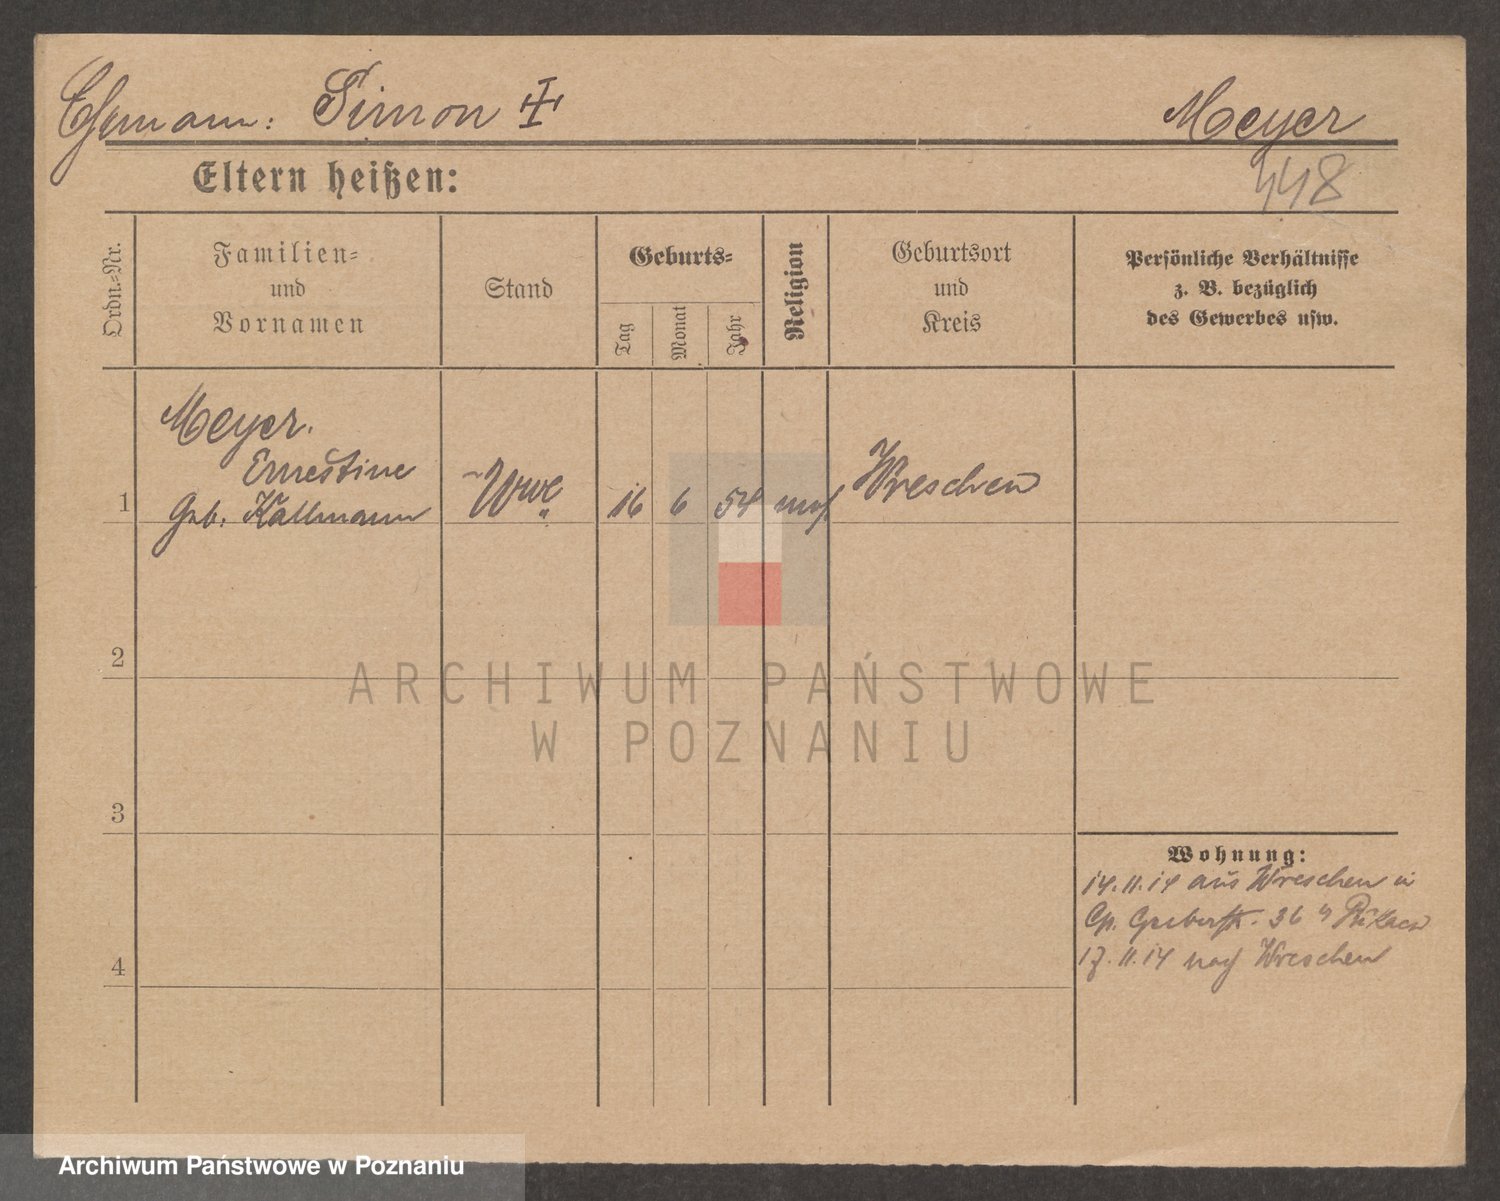 Ehemann: Simon
Meyer
448
Eltern heißen:
Ordn.-Nr.
Familien-
und
Vornamen
Stand
Geburts-
Tag
Monat
Jahr
Religion
Geburtsort
und
Kreis
Persönliche Verhältnisse
z. B. bezüglich
des Gewerbes usw.
Meyer.
Ernestine
1 Geb. Kallmann Wwe 16 6 54 mos Wreschen
2
3
4
Wohnung:
14.11.14 aus Wreschen in
36
17.11.14 nach Wreschen
ARCHIWUM PAŃSTWOWE
W POZNANIU
Archiwum Państwowe w Poznaniu